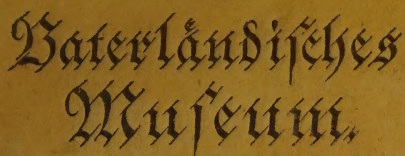 Vaterländisches
Museum.